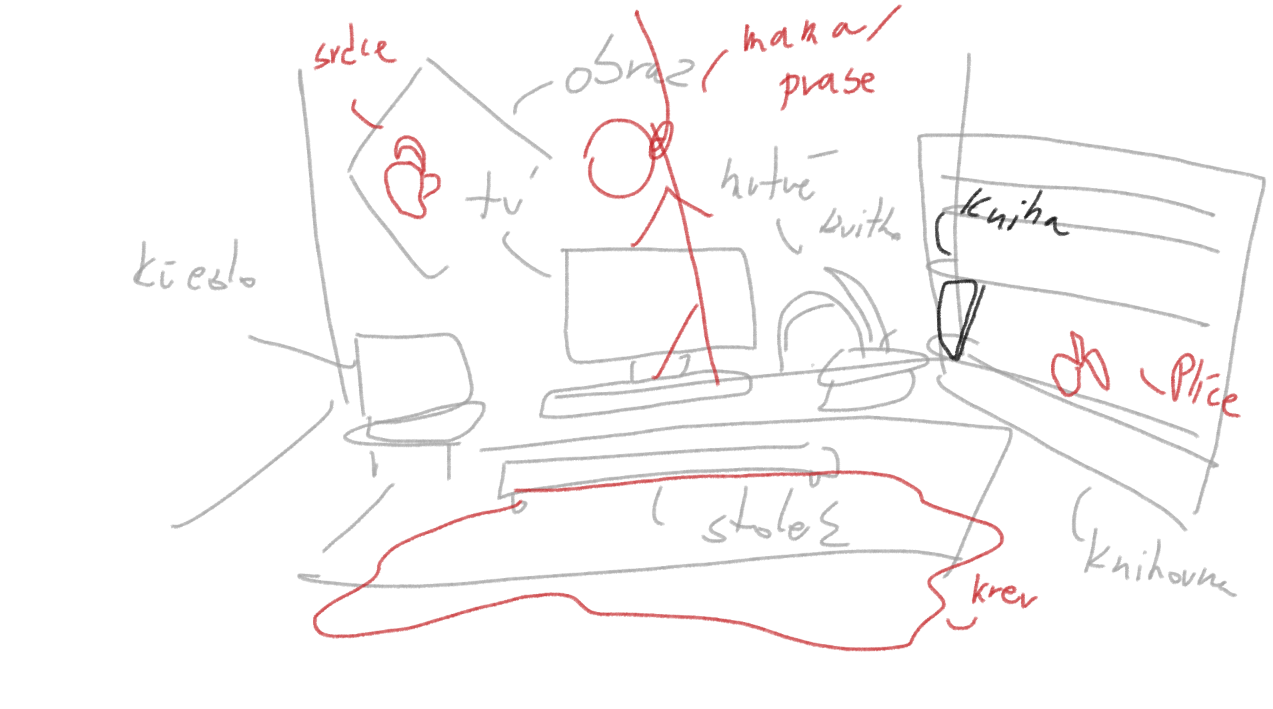 srdce
obraz
mama/
prase
tv
mrtvé
kvítko
kniha
křeslo
Plíce
stoleč
knihovna
krev